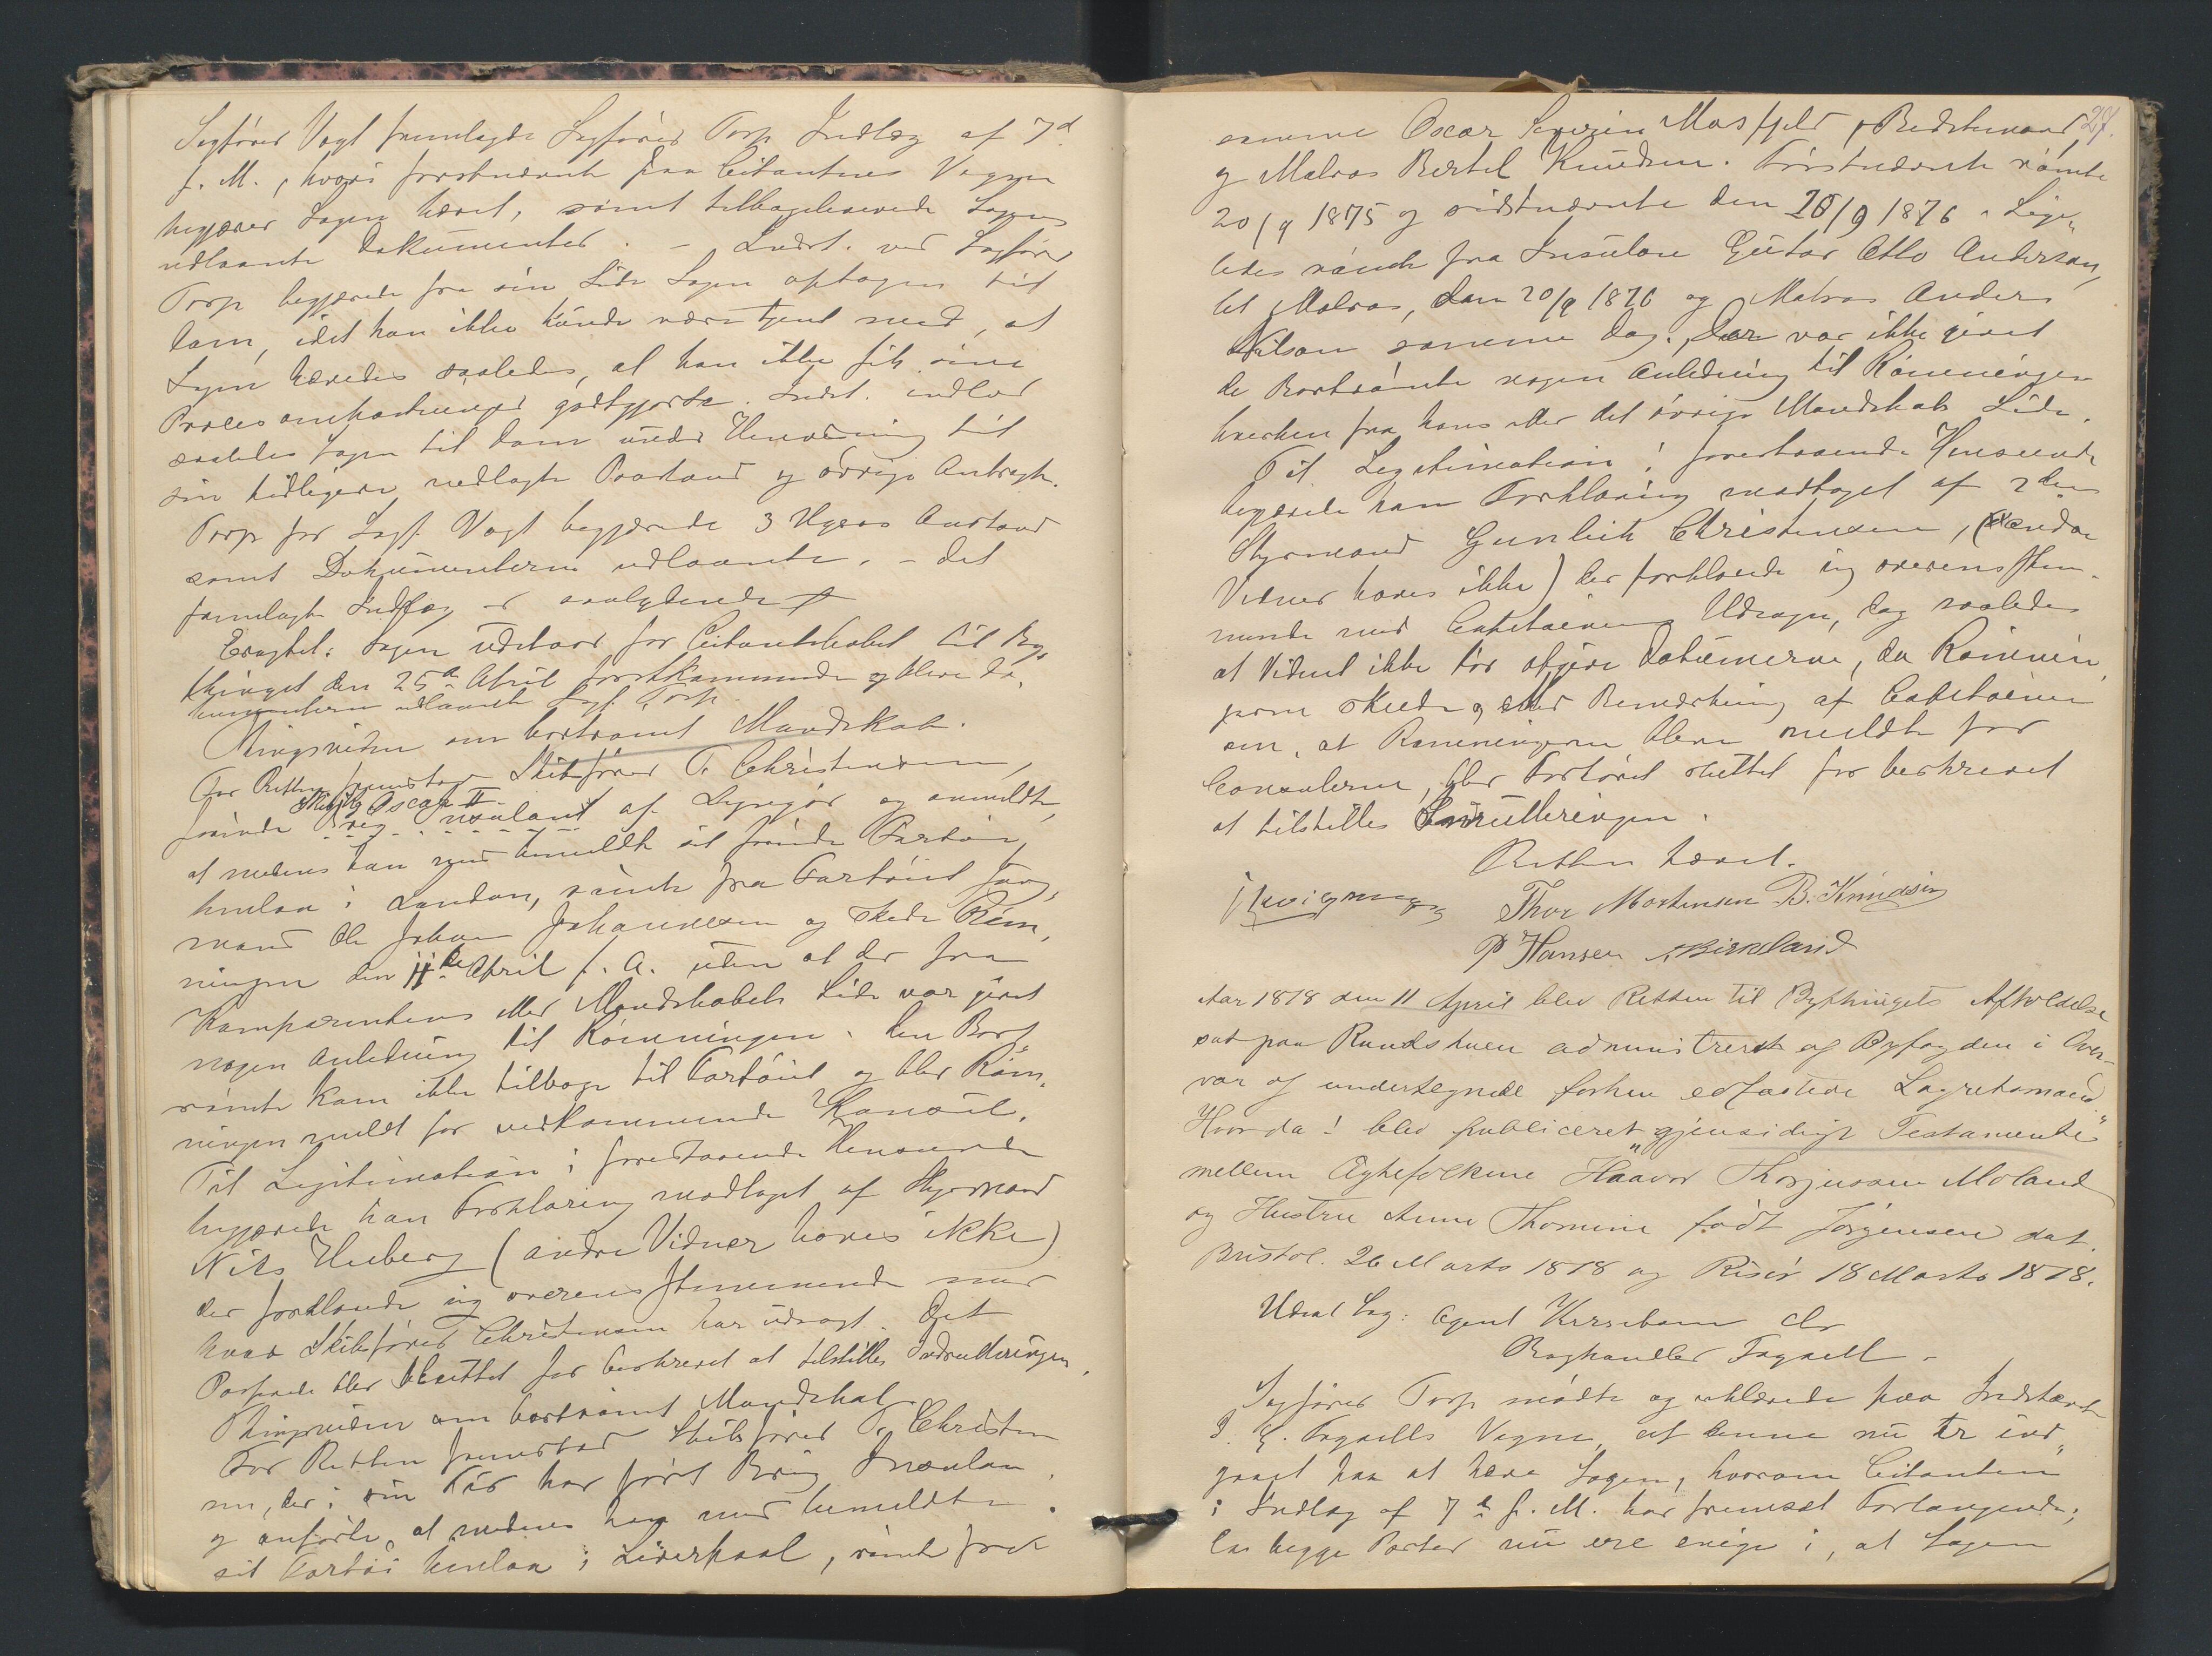 Sagfører Vogt fremlagde Sagfører Torp Indlæg af 7d
f. M., hvori forstnævnte paa Citantens Vegne
begjærer Sagen hævet, samt tilbageleverede Sagens
udlaante Dokumenter. – Indst. ved Sagfører
Torp begjærede fra sin Side Sagen optagen til
Dom, idet han ikke kunde være tjent med, at
Sagen hævedes saaledes, at han ikke fik sine
Procesomkostninger godtgjorte. Indst. indlod
saaledes Sagen til Dom under Henvisning til
sin tidligere nedlagte Paastand og øvrige Anbragte.
Torp for Sagf. Vogt begjærede 3 Ugers Anstand
samt Dokumenterne udlaante. – Det
fremlagte Indlæg er saalydende
Eragtet: Sagen udstaar for Citantskabet til By„
thinget den 25de April førstkommende og bleve Do„
kumenterne udlaante Sagf. Torp.
Thingsvidne om bortrømt Mandskab.
For Retten fremstod Skibsfører T. Christensen,
Skib Oscar II
førende Brig Insulan af Lyngør og anmeldte,
at medens han med bemeldte sit førende Fartøi,
henlaa i London, rømte fra Fartøiet Jung„
mand Ole Johan Johannesen og skede Røm„
ningen den 11te April f. A. uden at der fra
Komparentens eller Mandskabets Side var givet
nogen Anledning til Rømningen. Den Bort„
rømte kom ikke tilbage til Fartøiet og blev Røm„
ningen meldt for vedkommende Konsul.
Til Legitimation i forestaaende Henseende
begjærede han Forklaring modtaget af Styrmand
Nils Heiberg (andre Vidner haves ikke)
der forklarede sig overensstemmende med
hvad Skibsfører Christensen har udsagt. Det
Passerede blev sluttet for beskrevet at tilstilles Indrulleringen.
Thingsvidne om bortrømt Mandskab
For Retten fremstod Skibsfører T. Christen
sen, der i sin Tid har ført Brig Insulan
og anførte, at medens han med bemeldte
sit Fartøi henlaa i Liverpool, rømte fra
27.
samme Oscar Severin Mosfjeld, Bedstemand,
og Matros Bertel Knudsen. Førstnævnte rømte
20/9 1875 og sidstnævnte den 20/9 1876. Lige„
ledes rømte fra Insulan Gustav Otto Anderson,
let Matros, den 20/9 1876 og Matros Anders
Nilson samme Dag. Der var ikke givet
de Bortrømte nogen Anledning til Rømningen
hverken fra hans eller det øvrige Mandskabs Side.
Til Legitimation i forestaaende Henseende
begjærede han Forklaring modtaget af 2den
Styrmand Gunleik Christensen, (andre
Vidner haves ikke) der forklarede sig overensstem„
mende med Captainens Udsagn, dog saaledes
at Vidnet ikke tør afgive Datumerne, da Rømnin„
gerne skede og efter Bemærkning af Captainen
om, at Rømningerne bleve meldte for
Consulerne, blev Forhøret sluttet for beskrevet
at tilstilles Indrulleringen.
Retten hævet.
Thor Mortensen B. Knudsen
P Hansen Birkeland
Aar 1878 den 11 April blev Retten til Bythingets Afholdelse
sat paa Raadstuen administreret af Byfogden i Over„
vær af undertegnede forhen edfæstede Lagrettesmænd
Hvor da: blev publiceret „gjensidigt Testamente"
mellem Ægtefolkene Haavor Thorjussen Moland
og Hustru Anne Thomine født Jørgensen dat.
Bristol. 26 Marts 1878 og Risør 18 Marts 1878.
Udsat Sag: Agent Kirsebom ctr
Boghandler Fagrell –
Sagfører Torp mødte og erklærede paa Indstævnte
J. E. Fagrells Vegne, at denne nu er ind„
gaaet paa at hæve Sagen, hvorom Citanten
i Indlæg af 7de f. M. har fremsat Forlangende;
Da begge Parter nu ere enige i, at Sagen